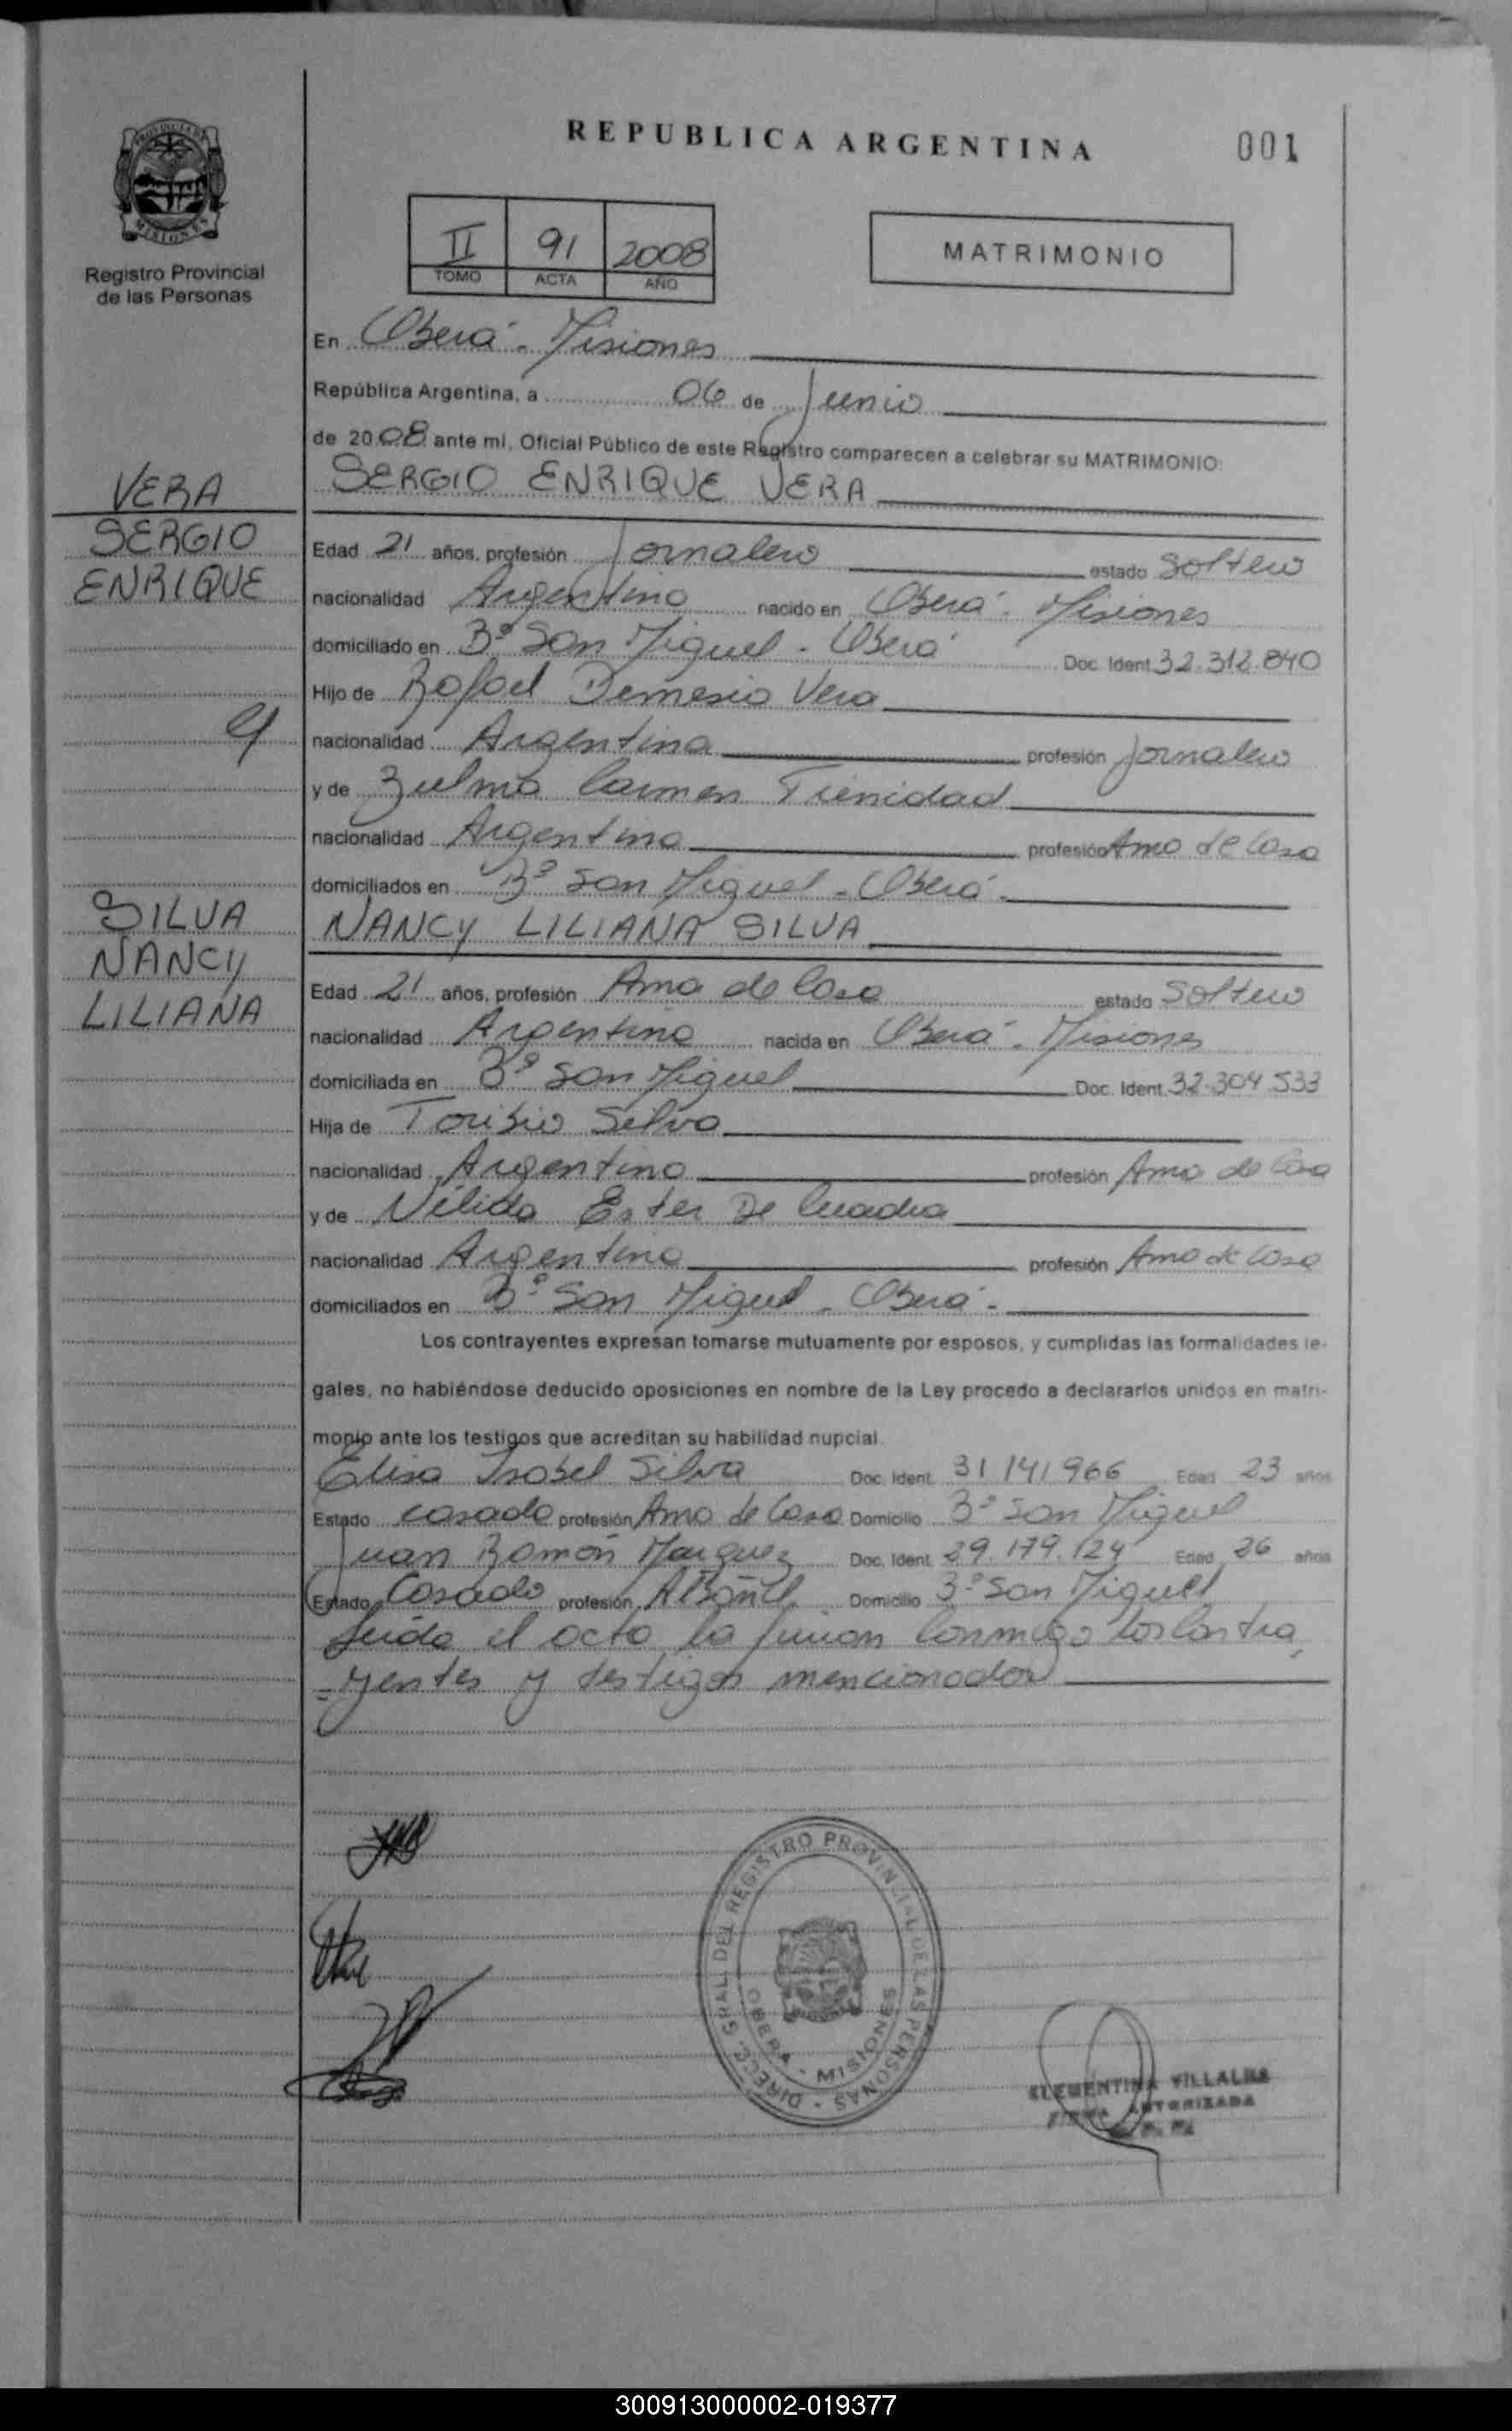 REPUBLICA ARGENTINA
001
PROVINCIA DE
MISIONES
Registro Provincial
de las Personas
II 91 2008
TOMO ACTA AÑO
MATRIMONIO
En Oberá - Misiones
República Argentina, a 06 de Junio
de 2008 ante mi, Oficial Público de este Registro comparecen a celebrar su MATRIMONIO:
SERGIO ENRIQUE VERA
VERA
SERGIO
ENRIQUE
Edad 21 años, profesión Jornalero estado Soltero
nacionalidad Argentino nacido en Oberá - Misiones
domiciliado en Bº San Miguel - Oberá Doc. Ident. 32.312.840
Hijo de Rafael Demesio Vera
nacionalidad Argentina profesión Jornalero
y de Zulma Carmen Trinidad
nacionalidad Argentina profesión Ama de Casa
domiciliados en Bº San Miguel - Oberá -
NANCY LILIANA SILVA
SILVA
NANCY
LILIANA
Edad 21 años, profesión Ama de Casa estado Soltera
nacionalidad Argentina nacida en Oberá - Misiones
domiciliada en Bº San Miguel Doc. Ident. 32.304.533
Hija de Toribio Silva
nacionalidad Argentina profesión Ama de Casa
y de Nélida Ester De Cuadra
nacionalidad Argentina profesión Ama de Casa
domiciliados en Bº San Miguel - Oberá -
Los contrayentes expresan tomarse mutuamente por esposos, y cumplidas las formalidades le-
gales, no habiéndose deducido oposiciones en nombre de la Ley procedo a declararlos unidos en matri-
monio ante los testigos que acreditan su habilidad nupcial.
Elisa Isabel Silva Doc. Ident. 31 141 966 Edad 23 años
Estado casada profesión Ama de Casa Domicilio Bº San Miguel
Juan Ramón Marquez Doc. Ident. 29.179.124 Edad 26 años
Estado Casado profesión Albañil Domicilio Bº San Miguel
Leida el acta la firman conmigo los contra
-yentes y testigos mencionados
DIREC. GRAL. DEL REGISTRO PROVINCIAL DE LAS PERSONAS -
OBERA - MISIONES
CLEMENTINA VILLALBA
FIRMA AUTORIZADA
300913000002-019377